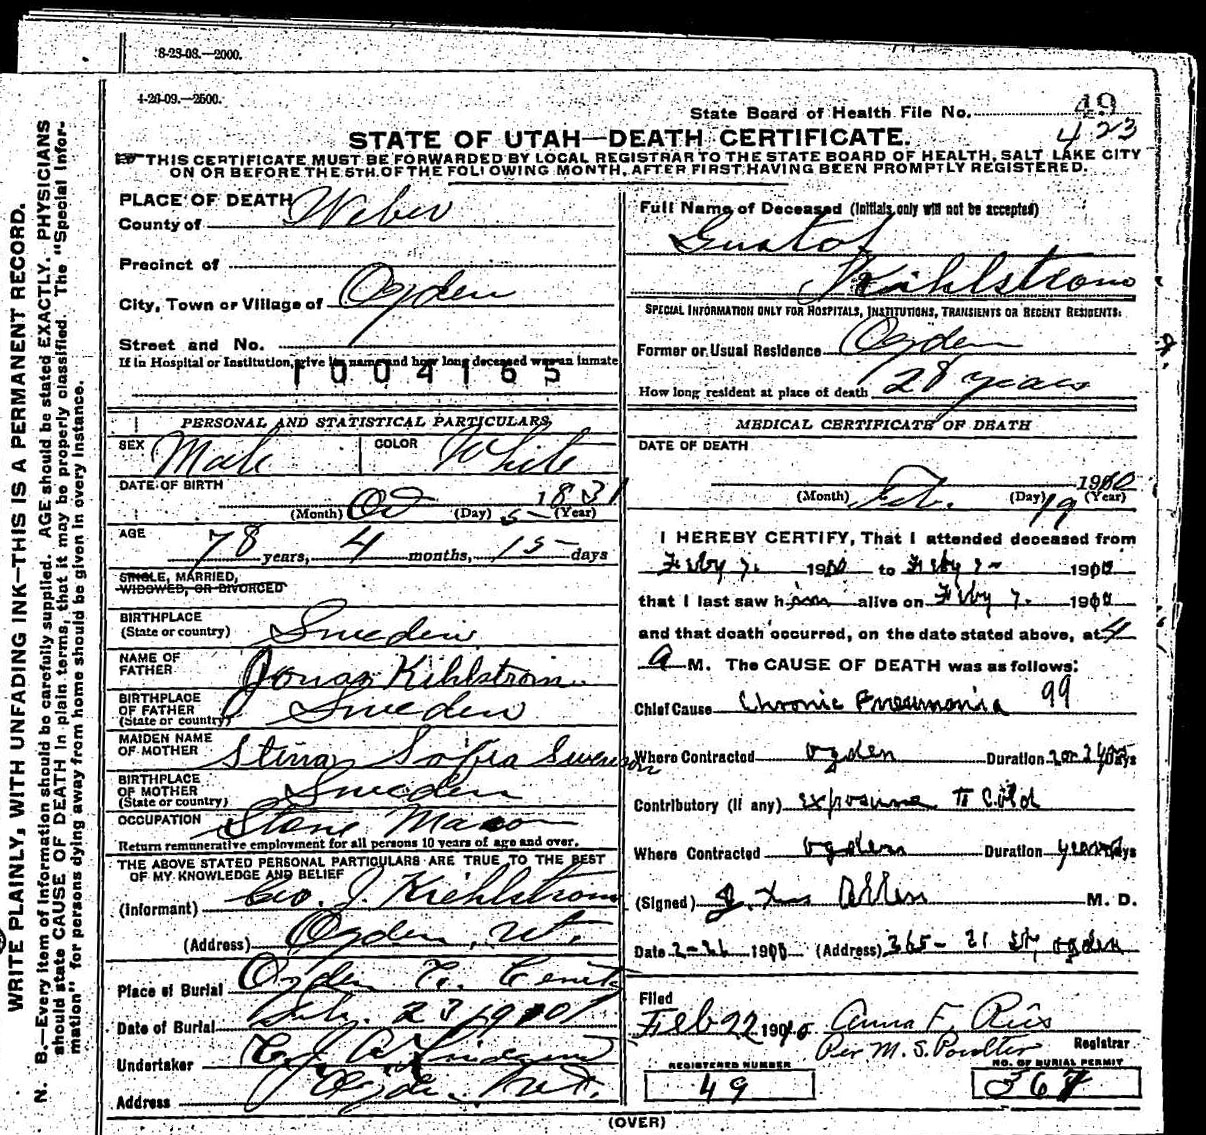 8-23-08.—2000.
4-26-09.—2500.
State Board of Health File No. 49
423
STATE OF UTAH—DEATH CERTIFICATE.
THIS CERTIFICATE MUST BE FORWARDED BY LOCAL REGISTRAR TO THE STATE BOARD OF HEALTH, SALT LAKE CITY
ON OR BEFORE THE 5TH OF THE FOLLOWING MONTH, AFTER FIRST HAVING BEEN PROMPTLY REGISTERED.
WRITE PLAINLY, WITH UNFADING INK—THIS IS A PERMANENT RECORD.
N. B.—Every item of information should be carefully supplied. AGE should be stated EXACTLY. PHYSICIANS
should state CAUSE OF DEATH in plain terms, that it may be properly classified. The "Special Infor-
mation" for persons dying away from home should be given in every instance.
PLACE OF DEATH
County of Weber
Precinct of
City, Town or Village of Ogden
Street and No.
If in Hospital or Institution, give its name and how long deceased was an inmate
1004165
PERSONAL AND STATISTICAL PARTICULARS
SEX Male COLOR White
DATE OF BIRTH
(Month) Oct (Day) 5 (Year) 1831
AGE 78 years, 4 months, 15 days
SINGLE, MARRIED,
WIDOWED, OR DIVORCED
BIRTHPLACE
(State or country) Sweden
NAME OF
FATHER Jonas Kihlstrom
BIRTHPLACE
OF FATHER
(State or country) Sweden
MAIDEN NAME
OF MOTHER Stina Sofia Swenson
BIRTHPLACE
OF MOTHER
(State or country) Sweden
OCCUPATION Stone Mason
Return remunerative employment for all persons 10 years of age and over.
THE ABOVE STATED PERSONAL PARTICULARS ARE TRUE TO THE BEST
OF MY KNOWLEDGE AND BELIEF
(Informant) Geo. J. Kiehlstrom
(Address) Ogden, Ut.
Place of Burial Ogden C. Cemty
Date of Burial 23 1910
Undertaker
Address Ogden Ut.
Full Name of Deceased (Initials only will not be accepted)
Gustof
Kihlstrom
SPECIAL INFORMATION ONLY FOR HOSPITALS, INSTITUTIONS, TRANSIENTS OR RECENT RESIDENTS:
Former or Usual Residence Ogden
How long resident at place of death 28 years
MEDICAL CERTIFICATE OF DEATH
DATE OF DEATH
(Month) Feb. (Day) 19 (Year) 1910
I HEREBY CERTIFY, That I attended deceased from
Feby 7. 1910 to Feby 7 1910
that I last saw him alive on Feby 7. 1910
and that death occurred, on the date stated above, at 4
A M. The CAUSE OF DEATH was as follows:
Chief Cause Chronic Pneumonia 99
Where Contracted Ogden Duration 2 or 2 yrs Days
Contributory (if any) exposure to Cold
Where Contracted Ogden Duration years Days
(Signed) Allen M. D.
Date 2-21 1910 (Address) 365- 21 St Ogden
Filed
Feb 22 1910 Anna F. Ries
Per M. S. Poulter Registrar
REGISTERED NUMBER
49
NO. OF BURIAL PERMIT
367
(OVER)